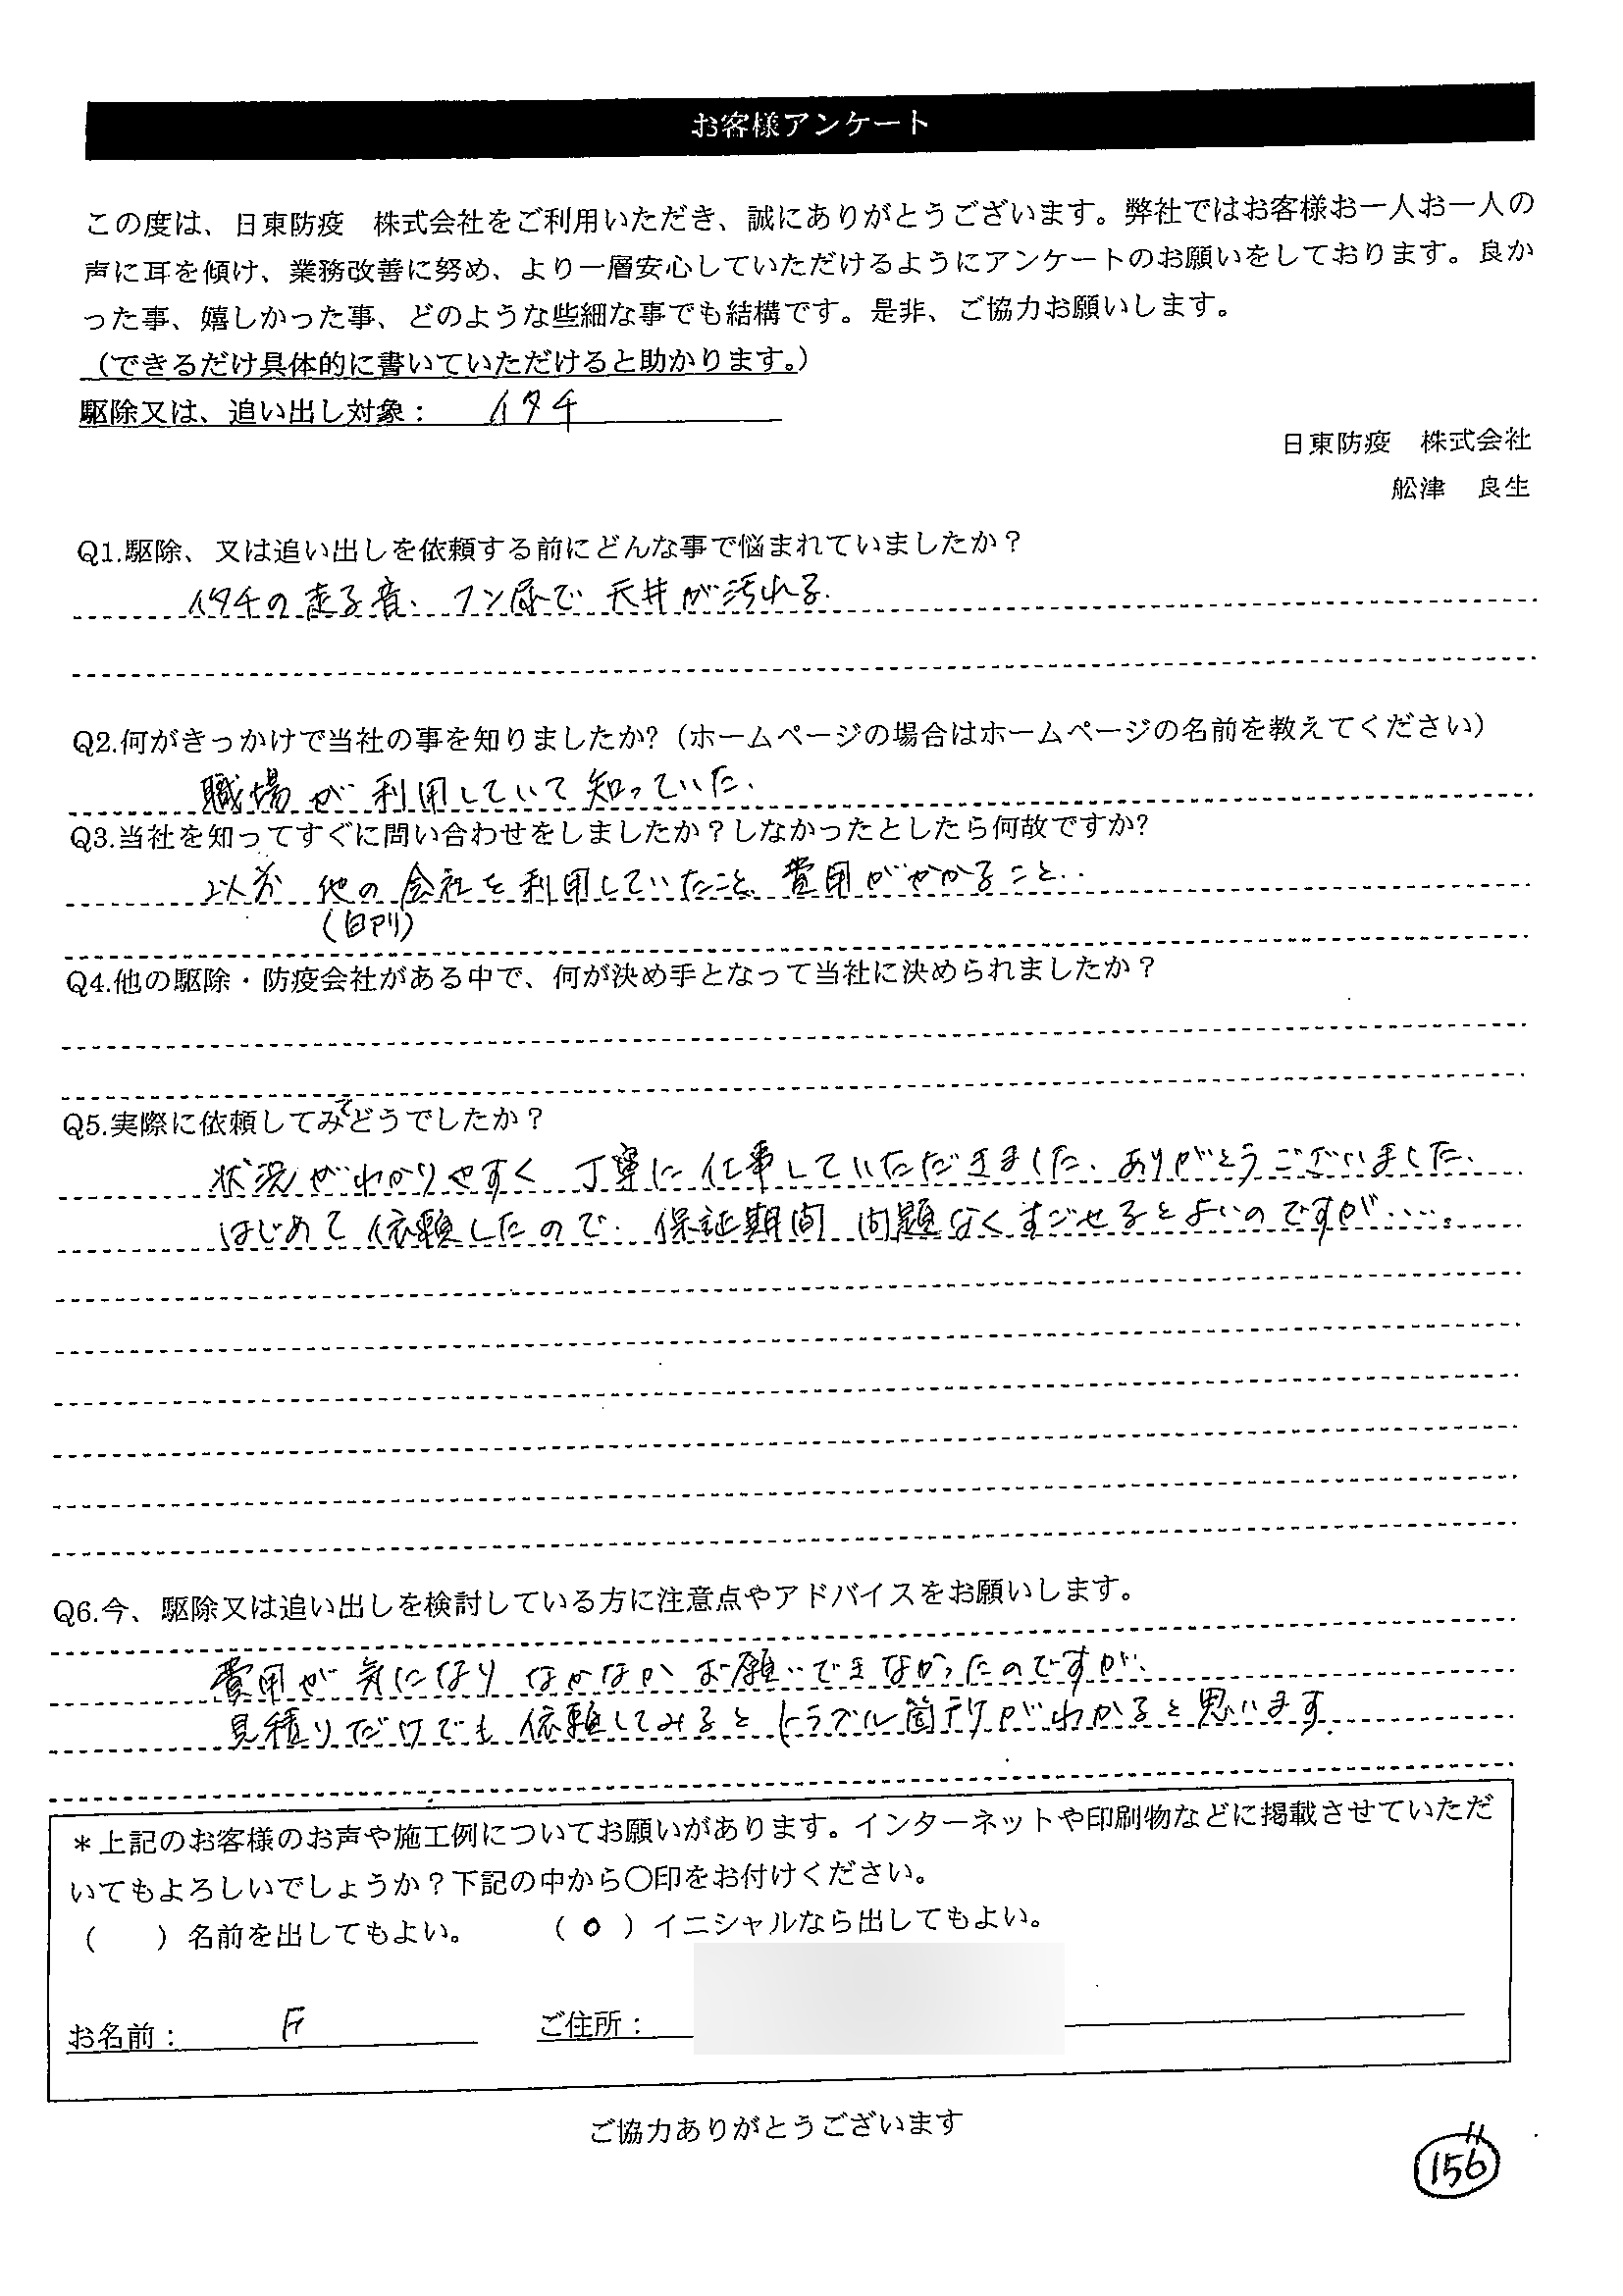 お客様アンケート
この度は、日東防疫　株式会社をご利用いただき、誠にありがとうございます。弊社ではお客様お一人お一人の
声に耳を傾け、業務改善に努め、より一層安心していただけるようにアンケートのお願いをしております。良か
った事、嬉しかった事、どのような些細な事でも結構です。是非、ご協力お願いします。
（できるだけ具体的に書いていただけると助かります。）
駆除又は、追い出し対象： イタチ
日東防疫　株式会社
舩津　良生
Q1.駆除、又は追い出しを依頼する前にどんな事で悩まれていましたか？
イタチの走る音、フン尿で 天井が汚れる.
Q2.何がきっかけで当社の事を知りましたか?（ホームページの場合はホームページの名前を教えてください）
職場が 利用していて 知っていた.
Q3.当社を知ってすぐに問い合わせをしましたか？しなかったとしたら何故ですか?
以前 他の 会社を利用していたこと、費用がかかること..
Q4.他の駆除・防疫会社がある中で、何が決め手となって当社に決められましたか？
Q5.実際に依頼してみてどうでしたか？
状況がわかりやすく 丁寧に仕事していただきました. ありがとうございました.
はじめて依頼したので. 保証期間 問題なくすごせるとよいのですが.....。
Q6.今、駆除又は追い出しを検討している方に注意点やアドバイスをお願いします。
費用が 気になり なかなか お願いできなかったのですが、
見積りだけでも 依頼してみると トラブル箇所がわかると思います.
＊上記のお客様のお声や施工例についてお願いがあります。インターネットや印刷物などに掲載させていただ
いてもよろしいでしょうか？下記の中から〇印をお付けください。
（　　）名前を出してもよい。　（ o ）イニシャルなら出してもよい。
お名前： F　ご住所：
ご協力ありがとうございます
156